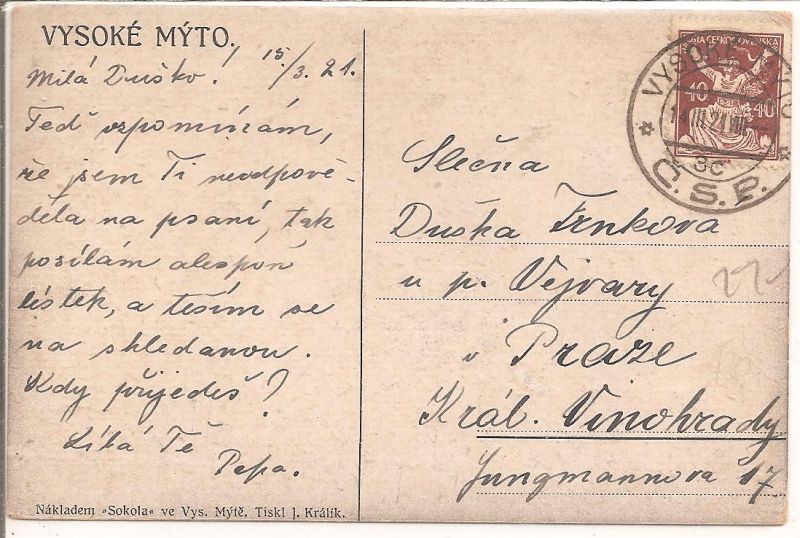 VYSOKÉ MÝTO.
15./3. 21.
Milá Duško!
Teď vzpomínám,
že jsem Ti neodpově-
děla na psaní, tak
posílám alespoň
lístek, a těším se
na shledanou.
Kdy přijedeš?
Líbá Tě
Pepa.
Nákladem »Sokola« ve Vys. Mýtě. Tiskl J. Králík.
POŠTA ČESKOSLOVENSKÁ
40 40
VYSOKÉ MÝTO
III.21
3c
Č.S.P.
Slečna
Duška Frnkova
u p. Vejvary
v Praze
Král. Vinohrady
Jungmannova 17